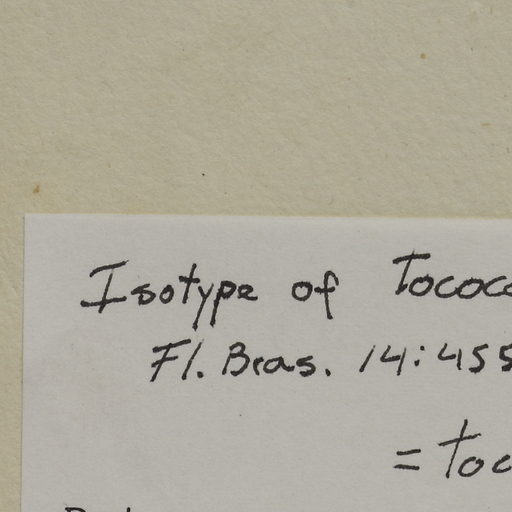 Isotype of Tococ
Fl. Bras. 14:455
= Toc